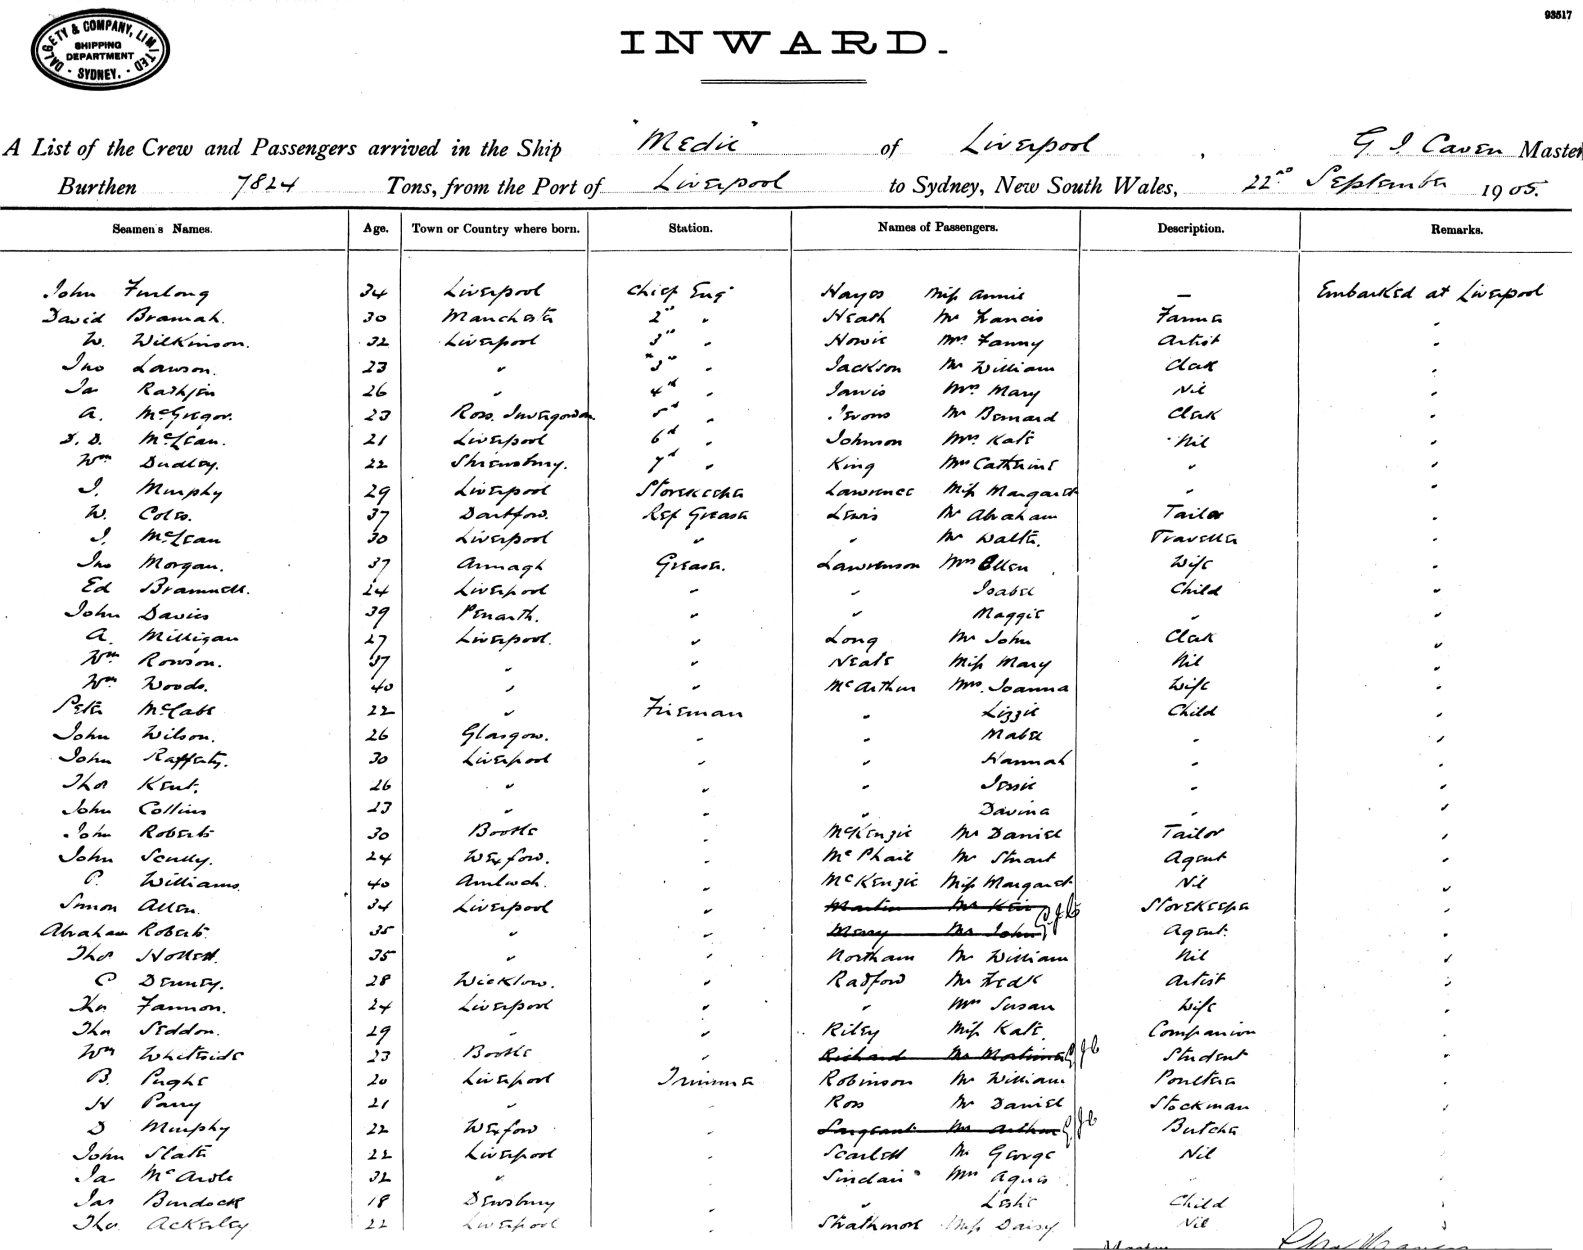 DALGETY & COMPANY, LIMITED
SHIPPING
DEPARTMENT
SYDNEY.
93517
INWARD.
A List of the Crew and Passengers arrived in the Ship "Medic" of Liverpool, G. J. Caven Master
Burthen 7824 Tons, from the Port of Liverpool to Sydney, New South Wales, 22nd September 1905.
Seamen's Names. Age. Town or Country where born. Station. Names of Passengers. Description. Remarks.
John Furlong 34 Liverpool Chief Eng. Hayes Miss Annie — Embarked at Liverpool
David Bramah. 30 Manchester 2nd " Heath Mr Francis Farmer "
W. Wilkinson. 32 Liverpool 3rd " Howie Mrs Fanny Artist "
Jno Lawson. 23 " "3rd " Jackson Mr William Clerk "
Ja Rathjin 26 " 4th " Jarvis Mrs Mary Nil "
A. McGregor. 23 Ross. Invergordon 5th " Jevons Mr Bernard Clerk "
D. D. McLean. 21 Liverpool 6th " Johnson Mrs Kate Nil "
Wm Dudley. 22 Shrewsbury. 7th " King Mrs Catherine " "
J. Murphy 29 Liverpool Storekeeper Lawrence Miss Margaret " "
W. Coles. 37 Dartford. Ref Greaser Lewis Mr Abraham Tailor "
J. McLean 30 Liverpool " " Mr Walter. Traveller "
Jno Morgan. 37 Armagh Greaser. Lawrenson Mrs Ellen Wife "
Ed Bramwell. 24 Liverpool " " Isabel Child "
John Davies 39 Penarth. " " Maggie " "
A. Milligan 27 Liverpool. " Long Mr John Clerk "
Wm Rowson. 37 " " Neale Miss Mary Nil "
Wm Woods. 40 " " McArthur Mrs. Joanna Wife "
Peter McCabe 22 " Fireman " Lizzie Child "
John Wilson. 26 Glasgow. " " Mabel " "
John Rafferty. 30 Liverpool " " Hannah " "
Thos Kent. 26 " " " Jessie " "
John Collins 23 " " " Davina " "
John Roberts 30 Bootle " McKenzie Mr Daniel Tailor "
John Scully. 24 Wexford. " McPhail Mr Stuart Agent "
P. Williams. 40 Amlwch. " McKenzie Miss Margaret Nil "
Simon Allen. 34 Liverpool " Martin Mr Keir Storekeeper "
Abraham Roberts. 35 " " Merry Mr John Agent. "
Thos Hollett. 35 " " Northam Mr William Nil "
C Denney. 28 Wicklow. " Radford Mr Fredk Artist "
Thos Fannon. 24 Liverpool " " Mrs Susan Wife "
Thos Seddon. 29 " " Riley Miss Kate Companion "
Wm Whiteside 23 Bootle " Richard Mr Mortimer Student "
B. Pughe 20 Liverpool Trimmer Robinson Mr William Poulterer "
H Parry 21 " " Ross Mr Daniel Stockman "
D Murphy 22 Wexford " Sargeant Mr Arthur Butcher "
John Slater 22 Liverpool " Scarlett Mr George Nil "
Ja McArdle 32 " " Sinclair Mrs Agnes " "
Jas Burdock 18 Dewsbury " " Leslie Child "
Thos. Ackerley 22 Liverpool " Strathmore Miss Daisy Nil "
Master